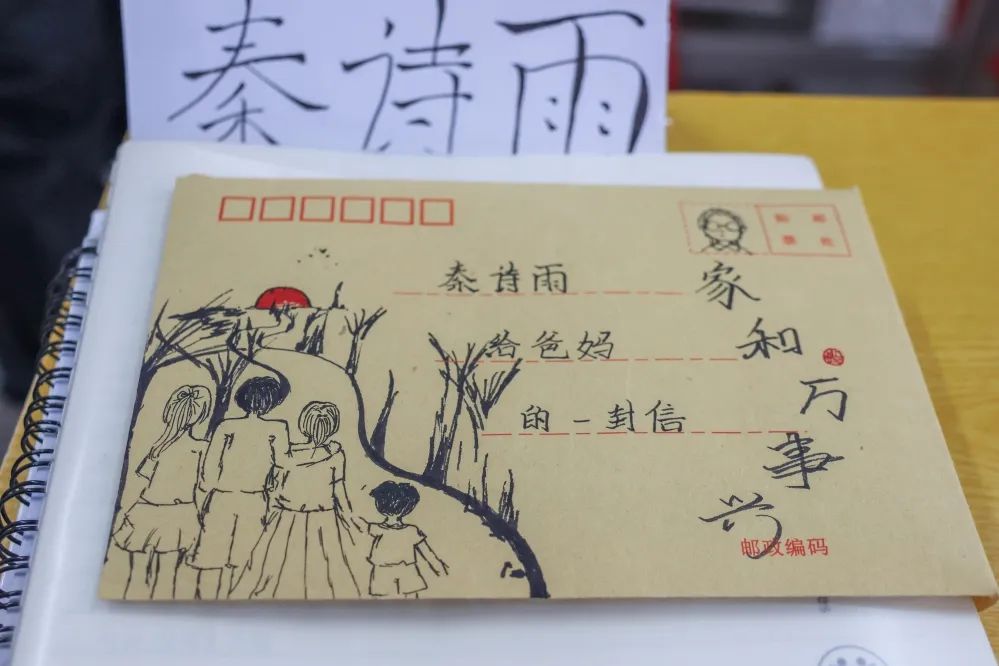 秦诗雨
贴 邮
票 处
秦诗雨
给爸妈
的一封信
家和万事兴
邮政编码